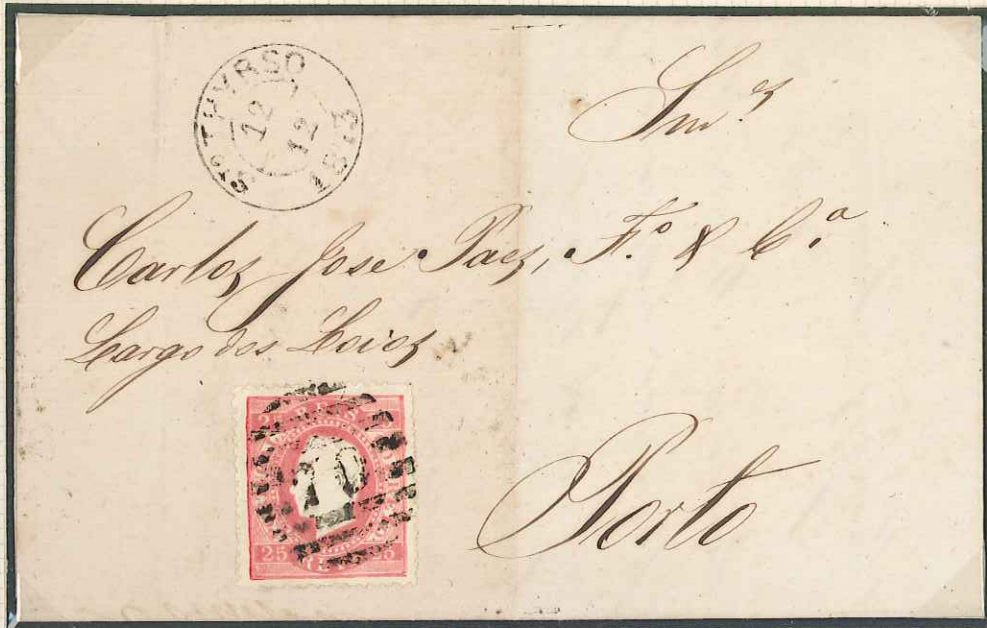 Sto THYRSO
12
12
1873
Snr.s
Carlos Jose Paes, F.o & C.a
Largo dos Loios
Porto
25 REIS 25
25 25